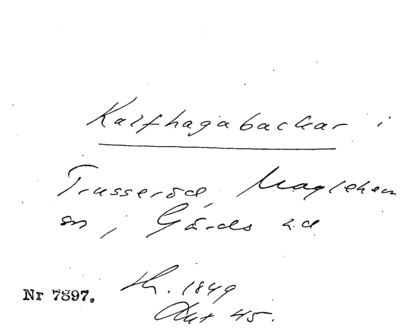 Kalfhagabackar i
Trusseröd, Maglehem
sn, Gärds h.d
Nr 7897. th. 1849
Akt 45.